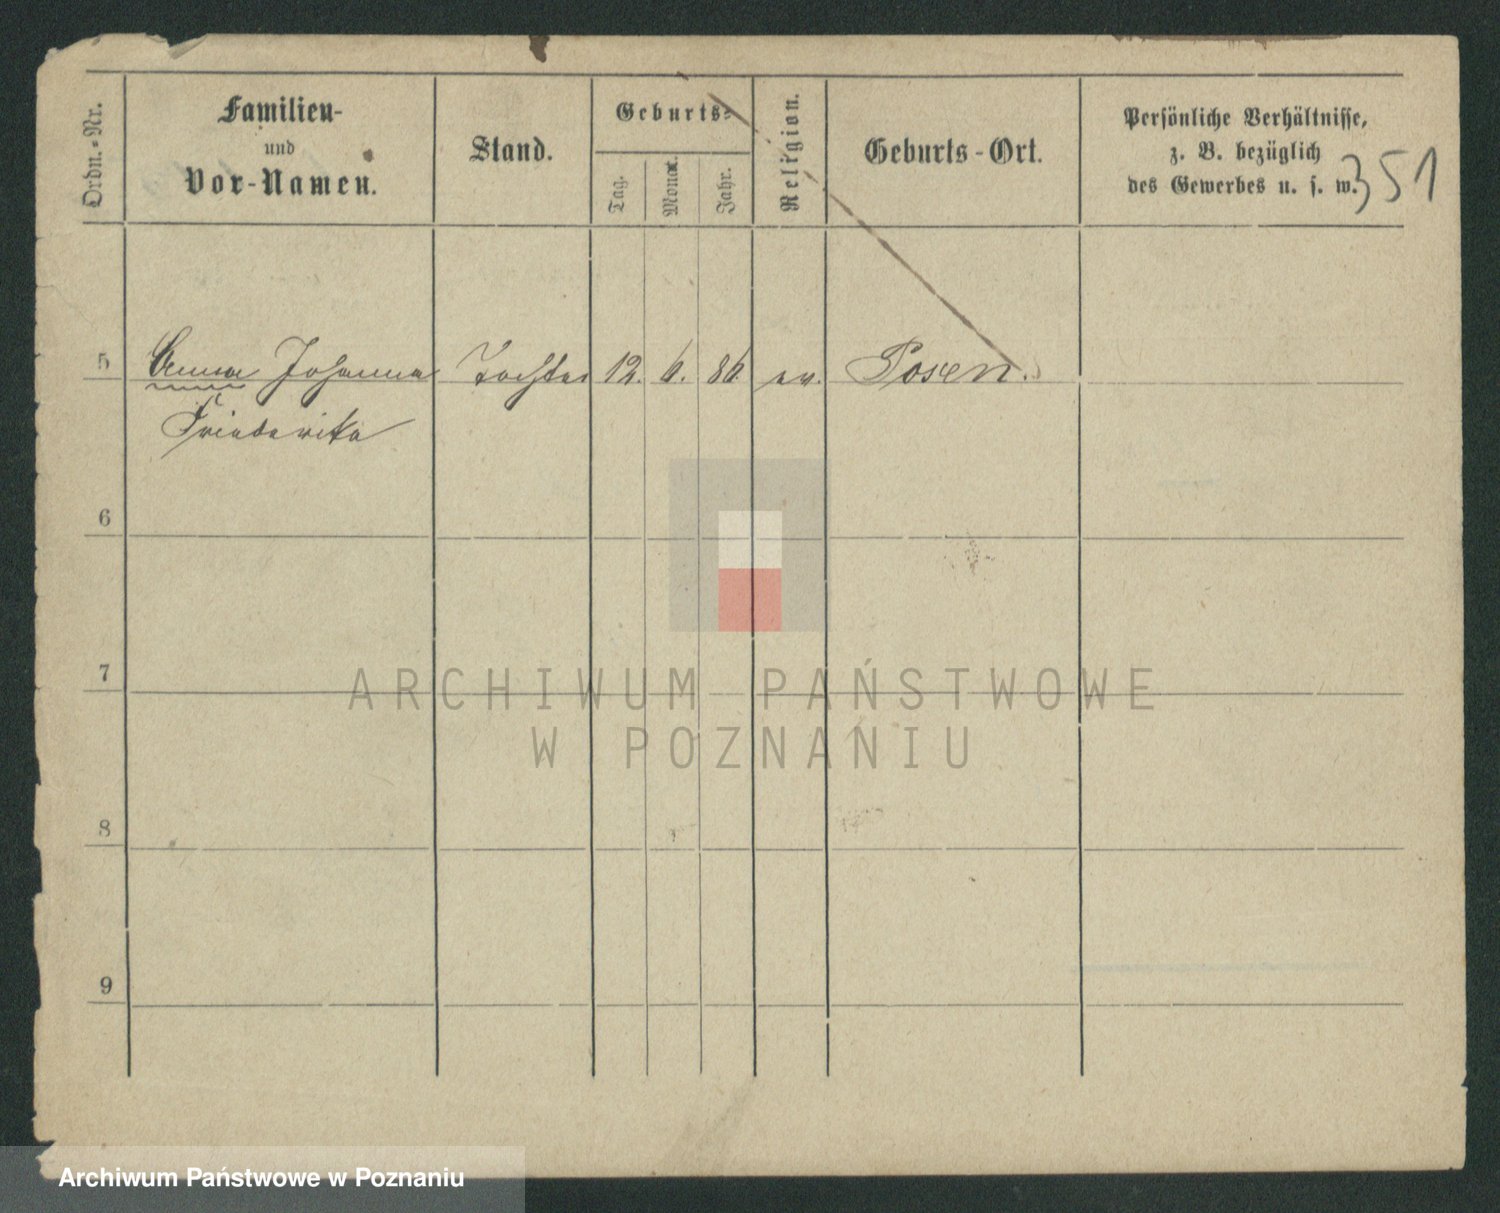 Ordn.-Nr.
Familien-
und
Vor-Namen.
Stand.
Geburts-
Tag.
Monat.
Jahr.
Religion.
Geburts-Ort.
Persönliche Verhältnisse,
z. B. bezüglich
des Gewerbes u. s. w.
351
5 Anna Johanna Tochter 12. 6. 86 ev. Posen.
Friederika
6
7
8
9
ARCHIWUM PAŃSTWOWE
W POZNANIU
Archiwum Państwowe w Poznaniu